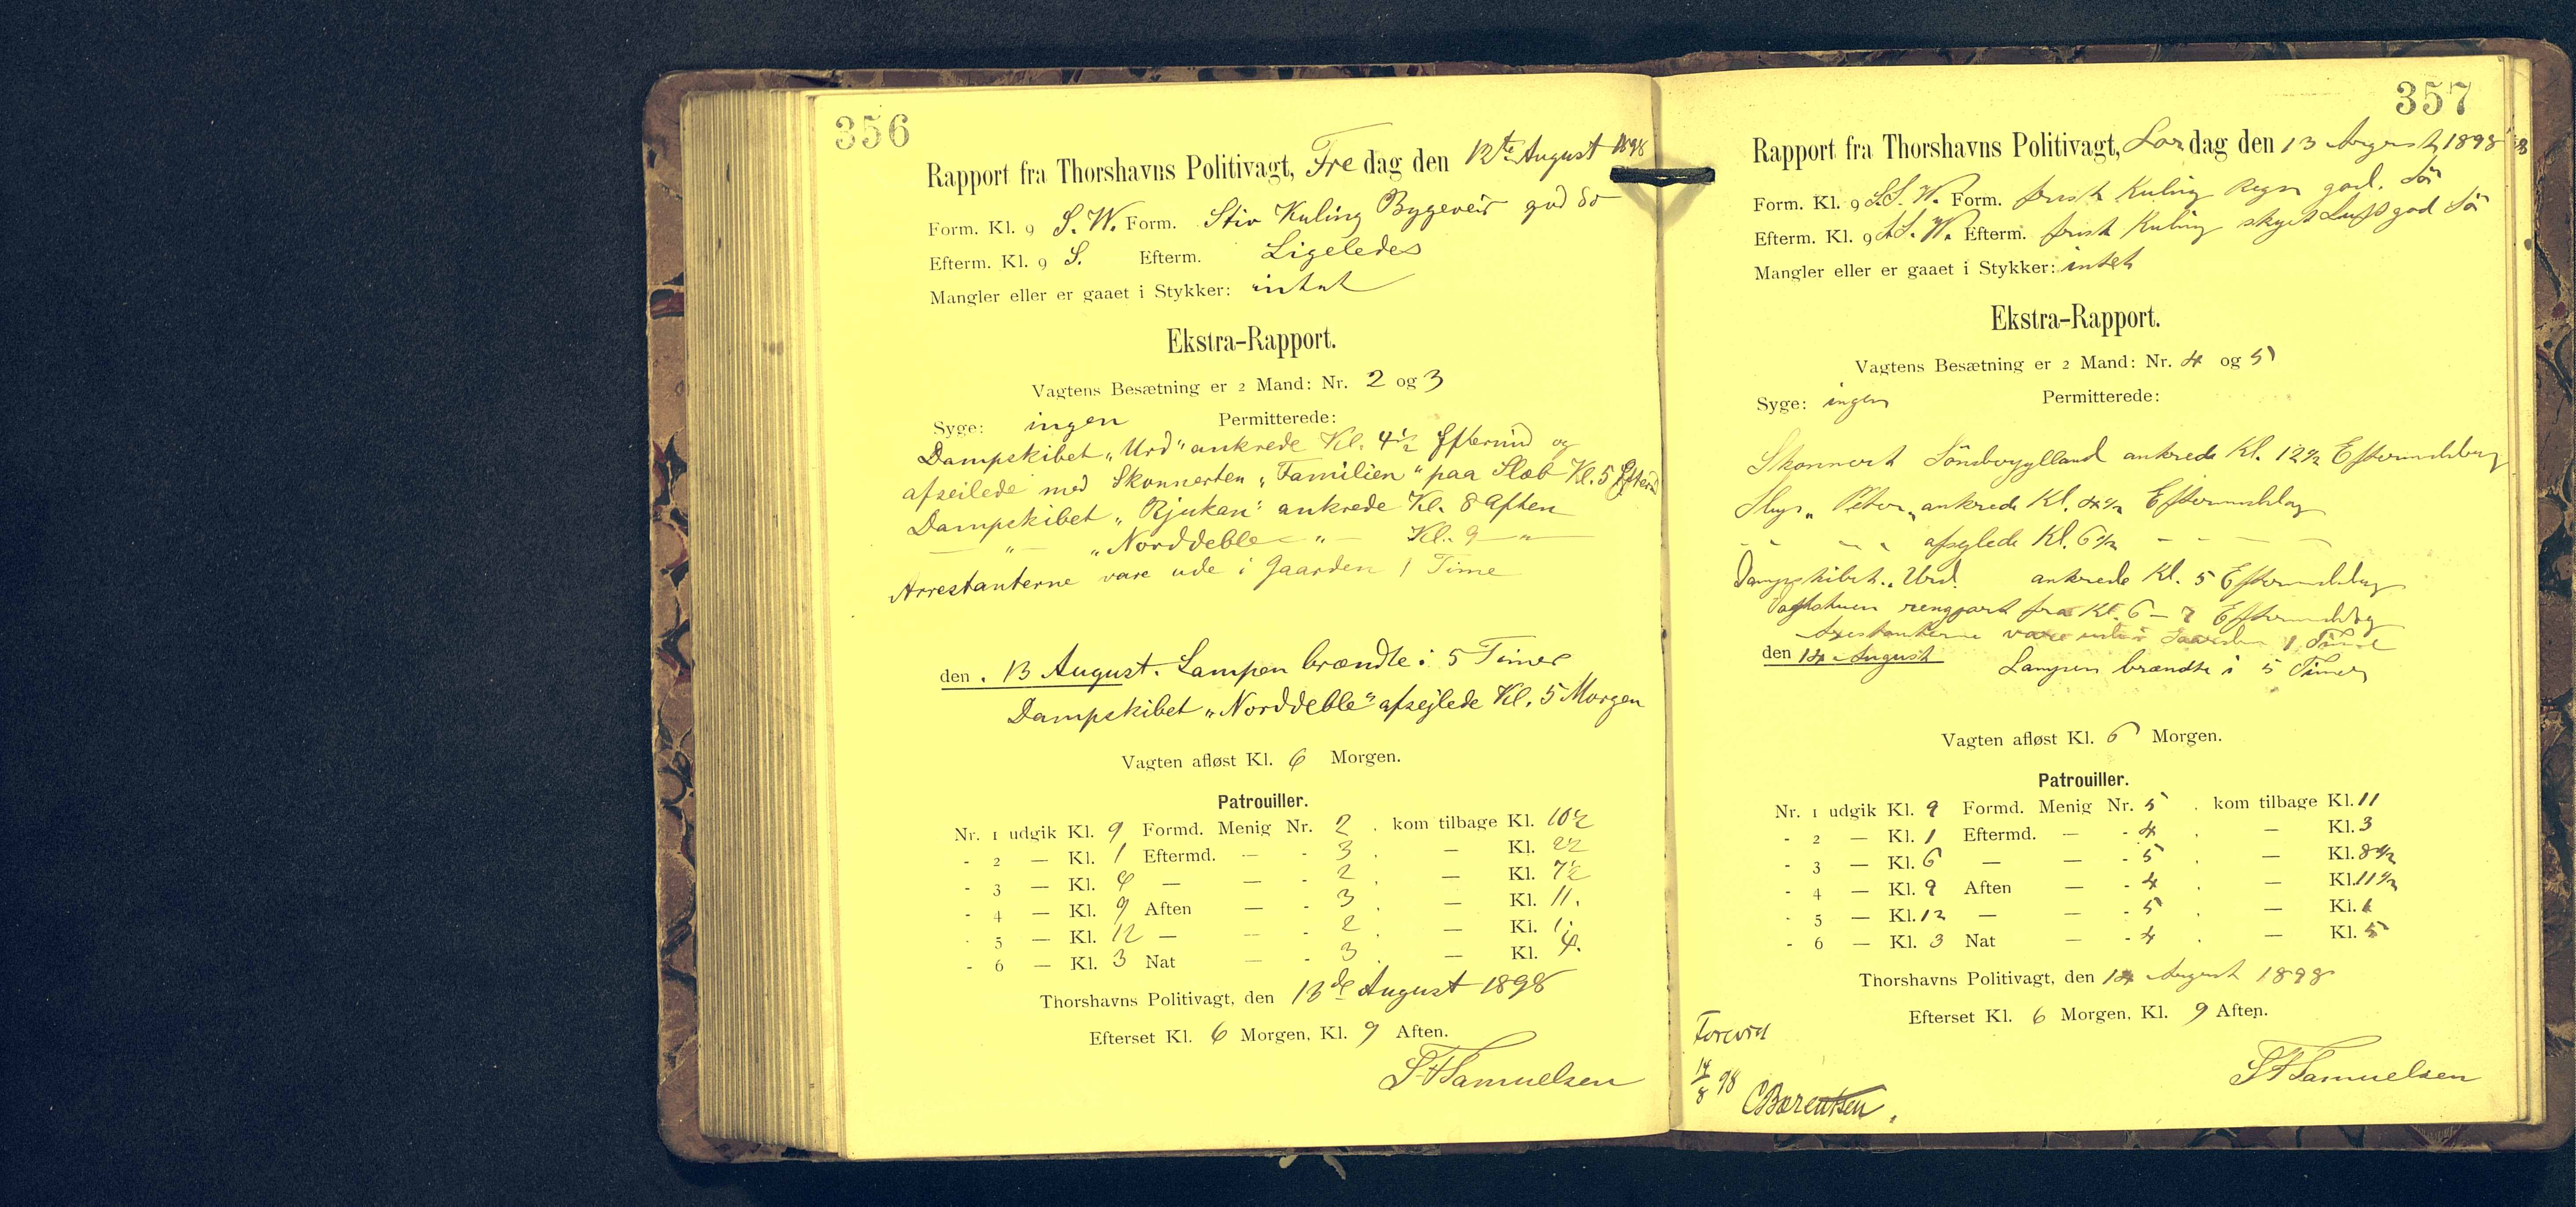 356
Rapport fra Thorshavns Politivagt, Fre dag den 12te August 1898
Form. Kl. 9 S. W. Form. Stiv Kuling Bygeveir god Sö
Efterm. Kl. 9 S. Efterm. Ligeledes
Mangler eller er gaaet i Stykker: intet
Ekstra-Rapport.
Vagtens Besætning er 2 Mand: Nr. 2 og 3
Syge: ingen Permitterede:
Dampskibet „Urd" ankrede Kl. 4½ Eftermd og
afseilede med Skonnerten „Familien" paa Slæb Kl. 5 Efterm
Dampskibet „Rjukan" ankrede Kl. 8 Aften
— " — „Norddeble — " — Kl. 9 — " —
Arrestanterne vare ude i Gaarden 1 Time
den . 13 August. Lampen brændte i 5 Timer
Dampskibet „Norddeble" afsejlede Kl. 5 Morgen
Vagten afløst Kl. 6 Morgen.
Patrouiller.
Nr. 1 udgik Kl. 9 Formd. Menig Nr. 2 . kom tilbage Kl. 10½
- 2 — Kl. 1 Eftermd. — - 3 . — Kl. 2½
- 3 — Kl. 6 — — - 2 . — Kl. 7½
- 4 — Kl. 9 Aften — - 3 . — Kl. 11.
- 5 — Kl. 12 — — - 2 . — Kl. 1.
- 6 — Kl. 3 Nat — - 3 . — Kl. 4.
Thorshavns Politivagt, den 13de August 1898
Efterset Kl. 6 Morgen, Kl. 9 Aften.
Samuelsen
357
Rapport fra Thorshavns Politivagt, Lör dag den 13 August 1898
Form. Kl. 9 S.S.W. Form. frisk Kuling Regn god. Sö
Efterm. Kl. 9 S.S.W. Efterm. frisk Kuling skyet Luft god Sö
Mangler eller er gaaet i Stykker: intet
Ekstra-Rapport.
Vagtens Besætning er 2 Mand: Nr. 4 og 5
Syge: ingen Permitterede:
Skonnert ankrede Kl. 12½ Eftermiddag
Slup „Peter„ ankrede Kl. 4½ Eftermiddag
- - - - afsejlede Kl. 6½ - - - -
Dampskibet „Urd. ankrede Kl. 5 Eftermiddag
Vagtstuen rengjort fra Kl. 6 — 7 Eftermiddag
Arrestanterne vare ude i Gaarden 1 Time
den 14 August Lampen brændte i 5 Timer
Vagten afløst Kl. 6 Morgen.
Patrouiller.
Nr. 1 udgik Kl. 9 Formd. Menig Nr. 5 . kom tilbage Kl. 11
- 2 — Kl. 1 Eftermd. — - 4 . — Kl. 3
- 3 — Kl. 6 — — - 5 . — Kl. 8½
- 4 — Kl. 9 Aften — - 4 . — Kl. 11½
- 5 — Kl. 12 — — - 5 . — Kl. 1
- 6 — Kl. 3 Nat — - 4 . — Kl. 5
Thorshavns Politivagt, den 14 August 1898
Efterset Kl. 6 Morgen, Kl. 9 Aften.
Samuelsen
Forevist
14/8 98
CBærentsen.